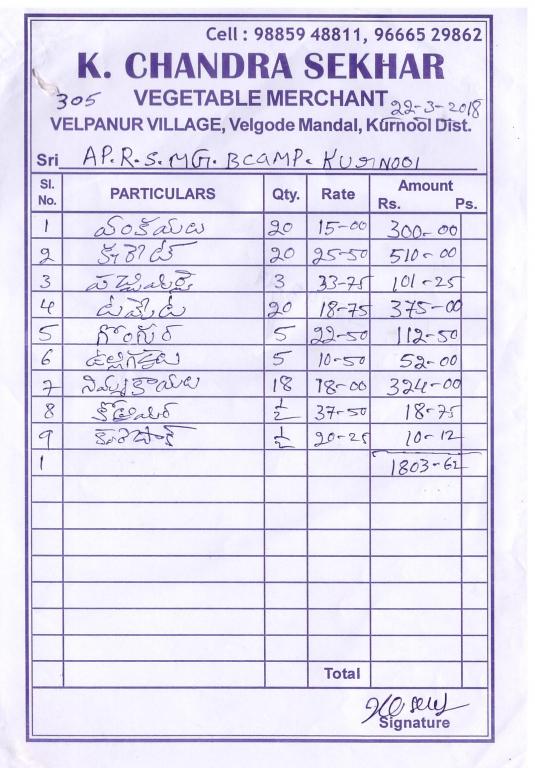 Cell : 98859 48811, 96665 29862
K. CHANDRA SEKHAR
305 VEGETABLE MERCHANT 22-3-2018
VELPANUR VILLAGE, Velgode Mandal, Kurnool Dist.
Sri AP.R.S.MG. BCAMP. KURNOOl
Sl. No. PARTICULARS Qty. Rate Amount Rs. Ps.
1 వంకాయలు 20 15-00 300-00
2 క్యారెట్ 20 25-50 510-00
3 పచ్చిమిర్చి 3 33-75 101-25
4 టమోట 20 18-75 375-00
5 గోంగూర 5 22-50 112-50
6 ఉల్లిగడ్డలు 5 10-50 52-00
7 నిమ్మకాయలు 18 18-00 324-00
8 కొతిమీర ½ 37-50 18-75
9 ½ 20-25 10-12
1 1803-62
Total
Signature